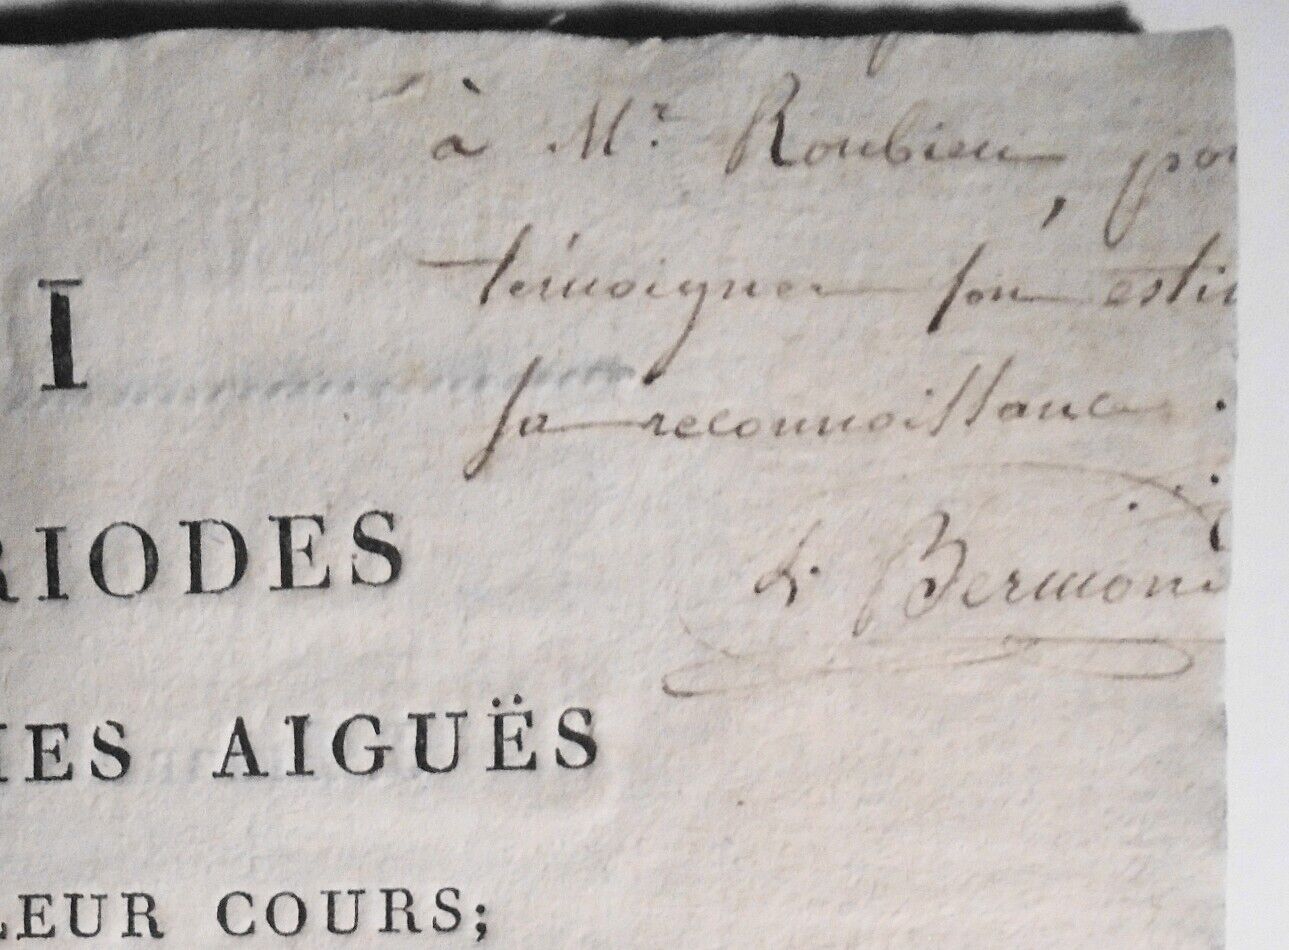 à Mr. Roubieu, pour
témoigner son estim
sa reconnoissance.
I
L. Bermond
RIODES
IES AIGUËS
LEUR COURS;